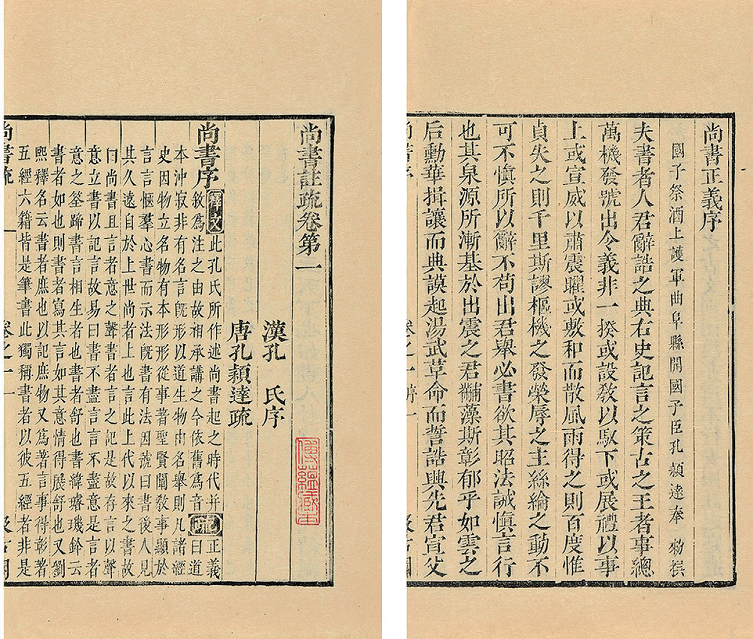 尚書正義序
國子祭酒上護軍曲阜縣開國子臣孔穎達奉 勑撰
夫書者人君辭誥之典右史記言之策古之王者事總
萬機發號出令義非一揆或設敎以馭下或展禮以事
上或宣威以肅震曜或敷和而散風雨得之則百度惟
貞失之則千里斯謬樞機之發榮辱之主絲綸之動不
可不慎所以辭不苟出君舉必書欲其昭法誡慎言行
也其泉源所漸基於出震之君黼藻斯彰郁乎如雲之
后勳華揖讓而典謨起湯武革命而誓誥興先君宣父
尚書註疏卷第一
漢孔 氏序
唐孔穎達疏
尚書序 釋文 此孔氏所作述尚書起之時代并
敘爲注之由故相承講之今依舊爲音 疏 正義曰道
本沖寂非有名言旣形以道生物由名舉則凡諸經
史因物立名物有本形形從事著聖賢闡敎事顯於
言言愜羣心書而示法旣書有法因號曰書後人見
其久遠自於上世尚者上也言此上代以來之書故
曰尚書且言者意之聲書者言之記是故存言以聲
意立書以記言故易曰書不盡言言不盡意是言者
意之筌蹄書言相生者也書者舒也書緯璿璣鈐云
書者如也則書者寫其言如其意情得展舒也又劉
熙釋名云書者庶也以記庶物又爲著言事得彰著
五經六籍皆是筆書此獨稱書者以彼五經者非是
尚書疏 卷之一 一